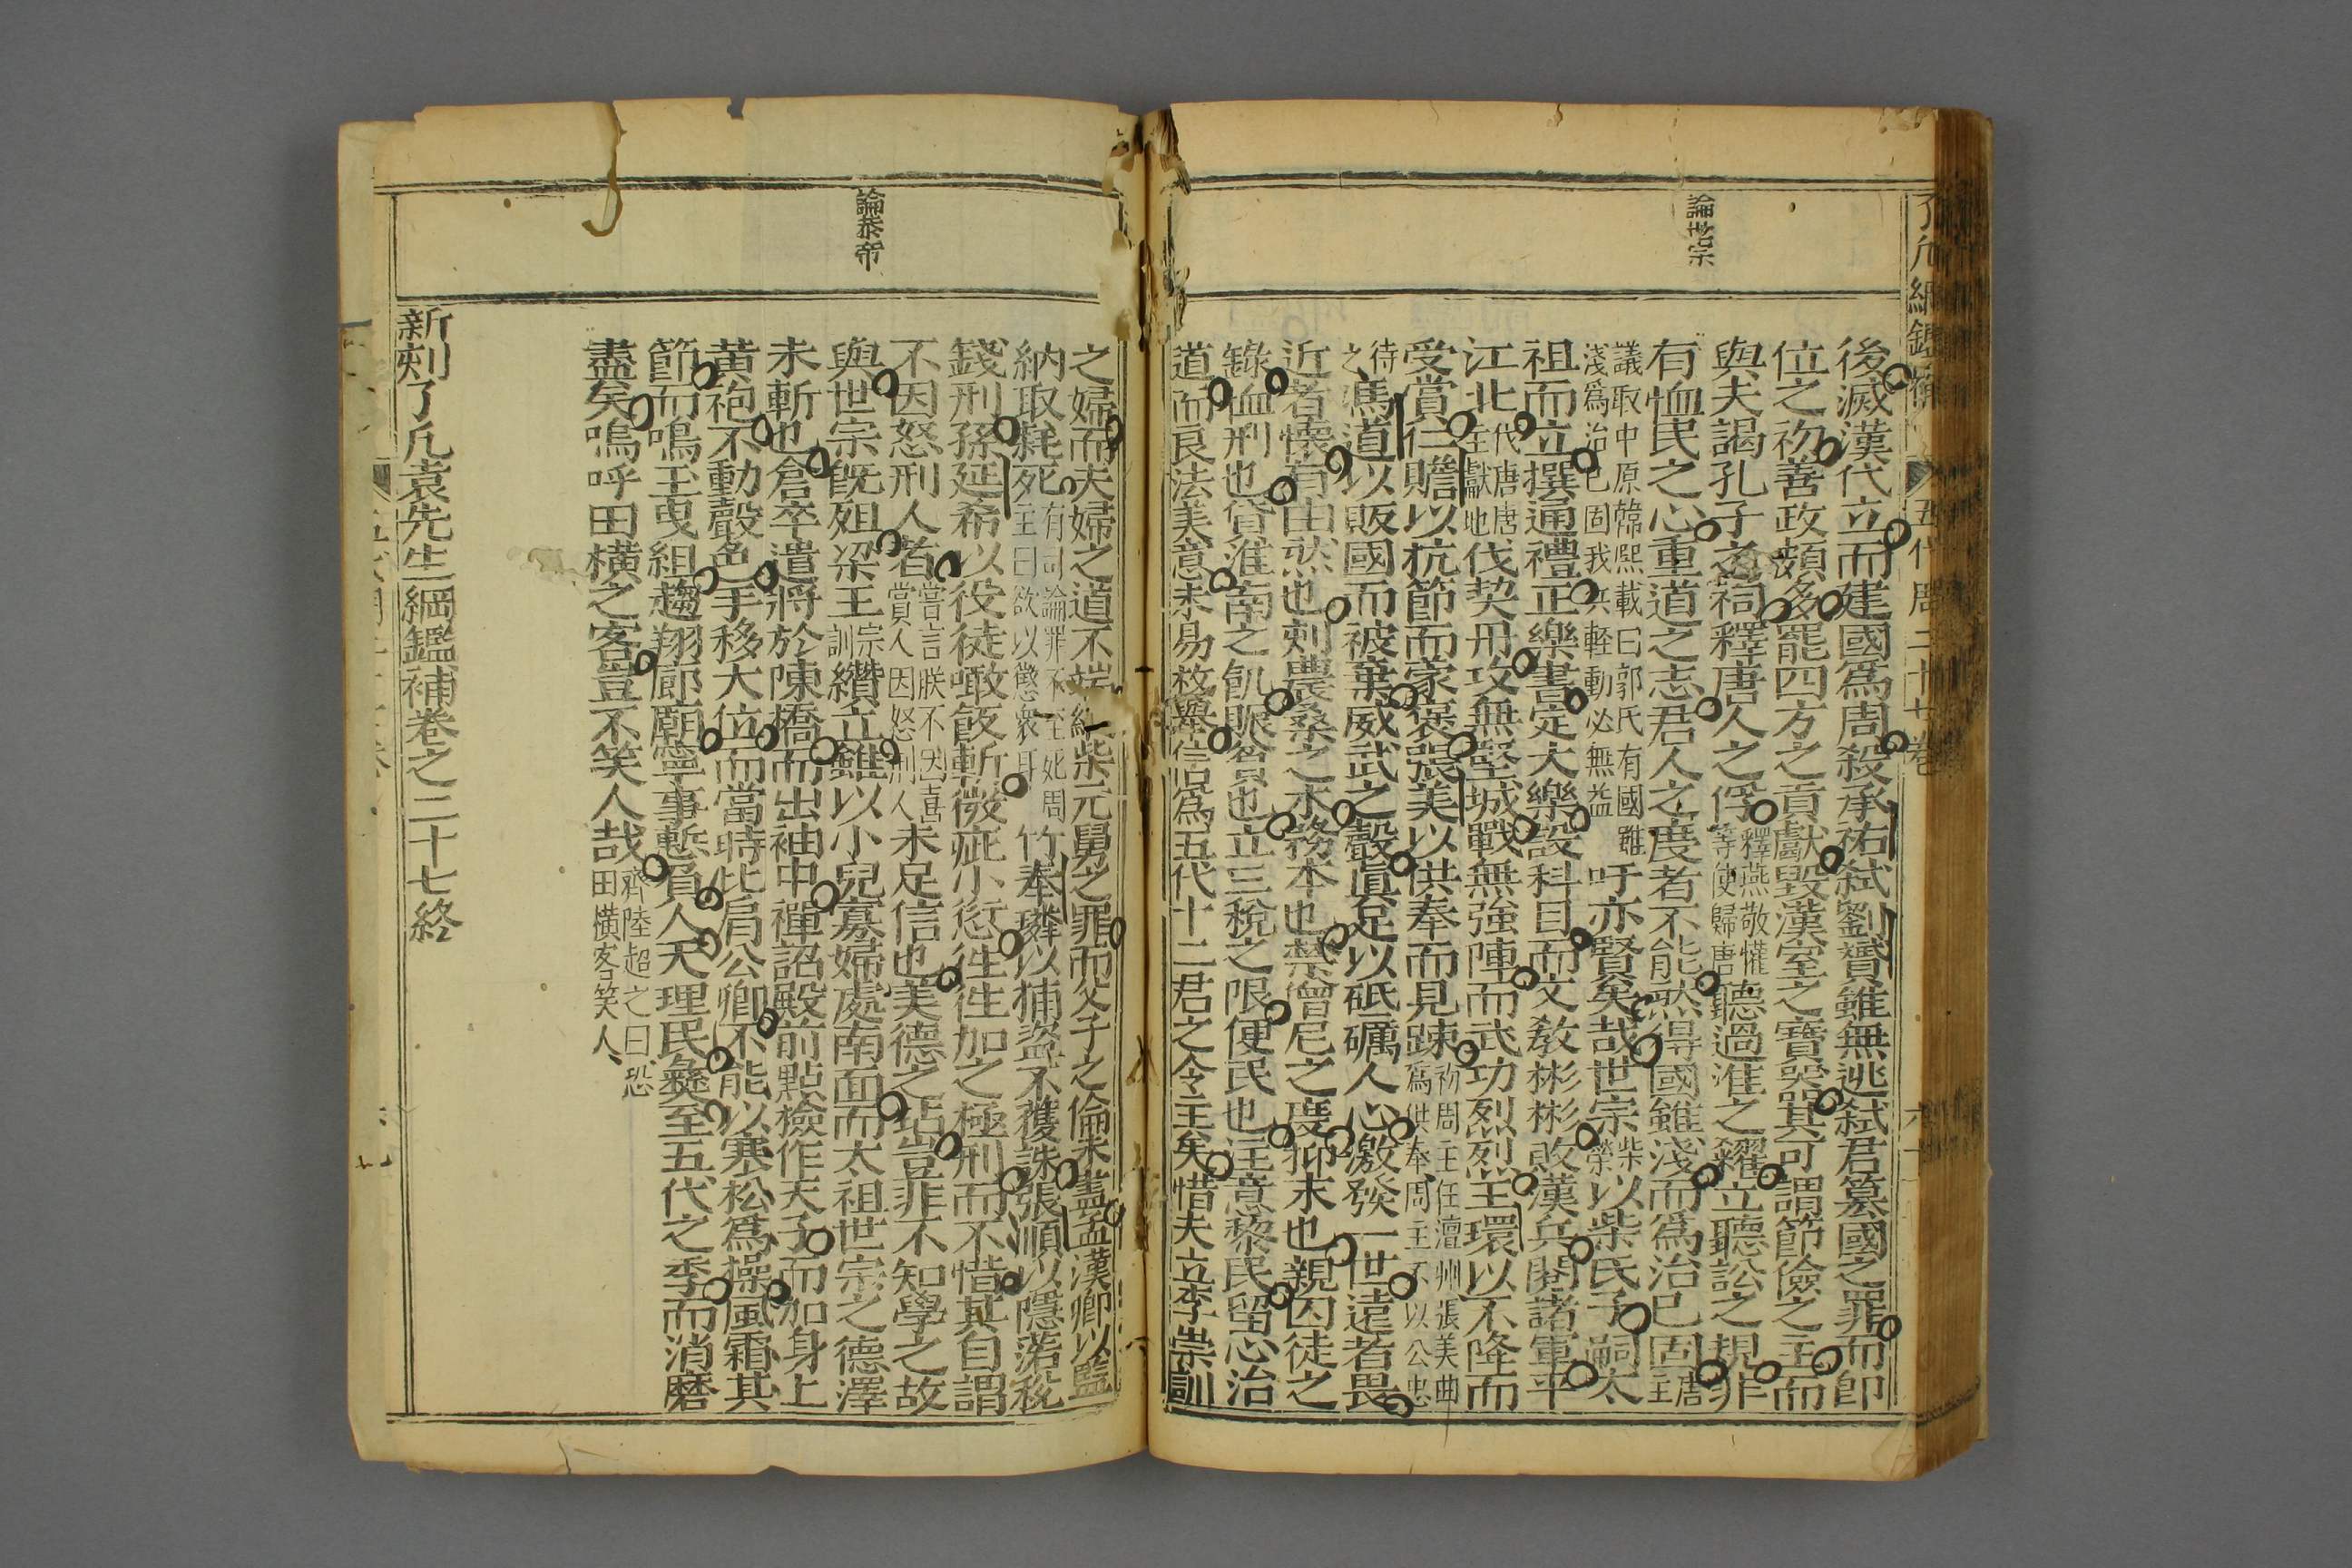 了凡綱鑑補 五代周二十七卷
論世宗
後滅漢代立而建國爲周殺承祐弑劉贇雖無逃弑君篡國之罪而卽
位之初善政頗多罷四方之貢獻毀漢室之寶器其可謂節儉之主而
與夫謁孔子之祠釋唐人之俘釋燕敬懽等使歸唐聽過淮之糴立聽訟之規非
有恤民之心重道之志君人之度者不能然得國雖淺而爲治已固唐主
議取中原韓熙載曰郭氏有國雖淺爲治已固我兵輕動必無益吁亦賢矣哉世宗柴榮以柴氏子嗣太
祖而立撰通禮正樂書定大樂設科目而文敎彬彬敗漢兵閱諸軍平
江北伐唐唐主獻地伐契丹攻無堅城戰無強陣而武功烈烈王環以不降而
受賞仁贍以抗節而蒙褒張美以供奉而見踈初周主任澶州張美曲爲供奉周主不以公忠
待之馮道以販國而被棄威武之聲眞足以砥礪人心激發一世遠者畏
近者懷有由然也刻農桑之木務本也禁僧尼之度抑末也親囚徒之
錄恤刑也貸淮南之飢賑窮也立三稅之限便民也注意黎民留心治
道而良法美意未易枚擧信乎爲五代十二君之令主矣惜夫立李崇訓
論恭帝
之婦而夫婦之道不端縱柴元舅之罪而父子之倫未盡孟漢卿以監
納取耗死有司論罪不至死周主曰欲以懲衆耳竹奉璘以捕盜不獲誅張順以隱落稅
錢刑孫延希以役徒噉飯斬微疵小愆徃徃加之極刑而不惜其自謂
不因怒刑人者嘗言朕不因喜賞人因怒刑人未足信也美德之玷豈非不知學之故
與世宗旣殂梁王宗訓纘立雖以小兒寡婦處南面而太祖世宗之德澤
未斬也倉卒遣將於陳橋而出袖中禪詔殿前點檢作天子而加身上
黃袍不動聲色手移大位而當時比肩公卿不能以寒松爲操風霜其
節而鳴玉曵組趨翔廊廟寧事慙負人天理民彝至五代之季而消磨
盡矣嗚呼田橫之客豈不笑人哉齊陸超之曰恐田橫客笑人
新刻了凡袁先生綱鑑補卷之二十七終